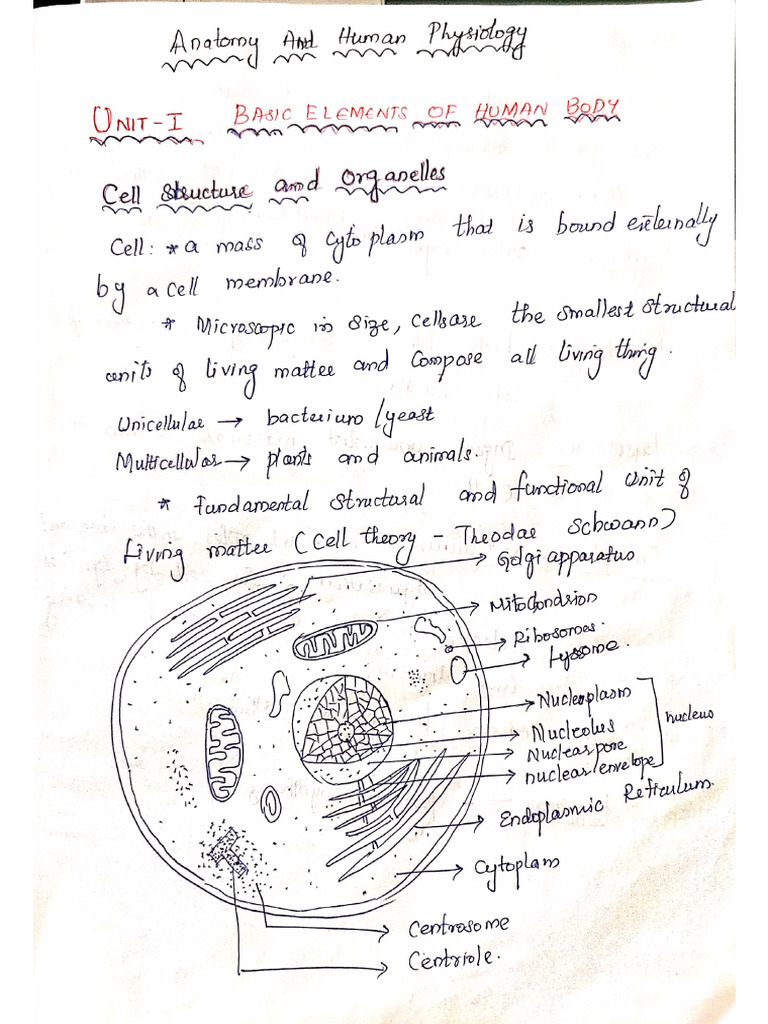 Anatomy And Human Physiology
UNIT-I BASIC ELEMENTS OF HUMAN BODY
Cell Structure and Organelles
Cell: * a mass of cytoplasm that is bound externally
by a cell membrane.
* Microscopic in size, cells are the smallest structural
units of living matter and compose all living thing.
Unicellular → bacterium / yeast
Multicellular → plants and animals.
* Fundamental structural and functional unit of
living matter (Cell theory - Theodar Schwann)
Golgi apparatus
Mitochondrion
Ribosomes.
Lysosome.
Nucleoplasm
Nucleolus
nucleus
Nuclear pore
nuclear envelope
Endoplasmic Reticulum.
Cytoplam
Centrosome
Centriole.